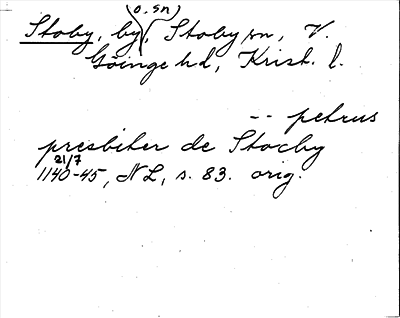 (o. sn)
Stoby, by, Stoby sn, V.
Göinge hd, Krist. l.
-- petrus
presbiter de Stocby
21/7
1140-45, NL, s. 83. orig.